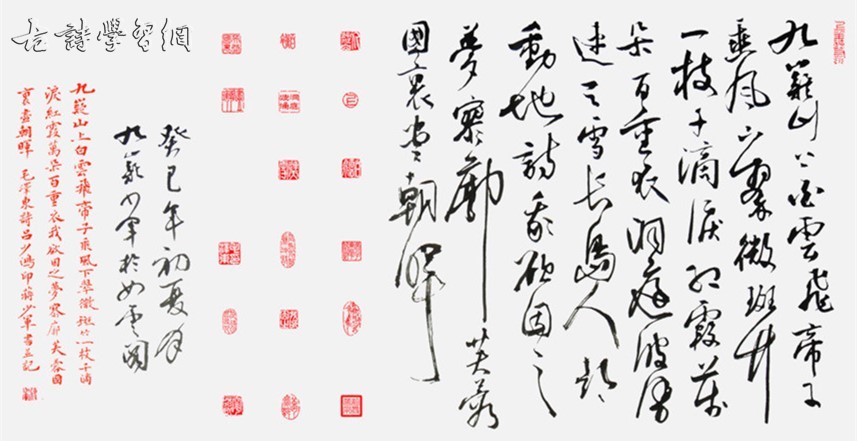 九嶷山上白雲飛帝子
乘風下翠微斑竹
一枝千滴淚紅霞萬
朵百重衣洞庭波涌
連天雪長島人歌
動地詩我欲因之
夢寥廓芙蓉
國裏盡朝暉
癸巳年初夏月
九嶷少軍於如雲閣
九嶷山上白雲飛帝子乘風下翠微斑竹一枝千滴
淚紅霞萬朵百重衣我欲因之夢寥廓芙蓉國
裏盡朝暉 毛澤東詩呂少鳴印蔣少軍書並記
詩學習網